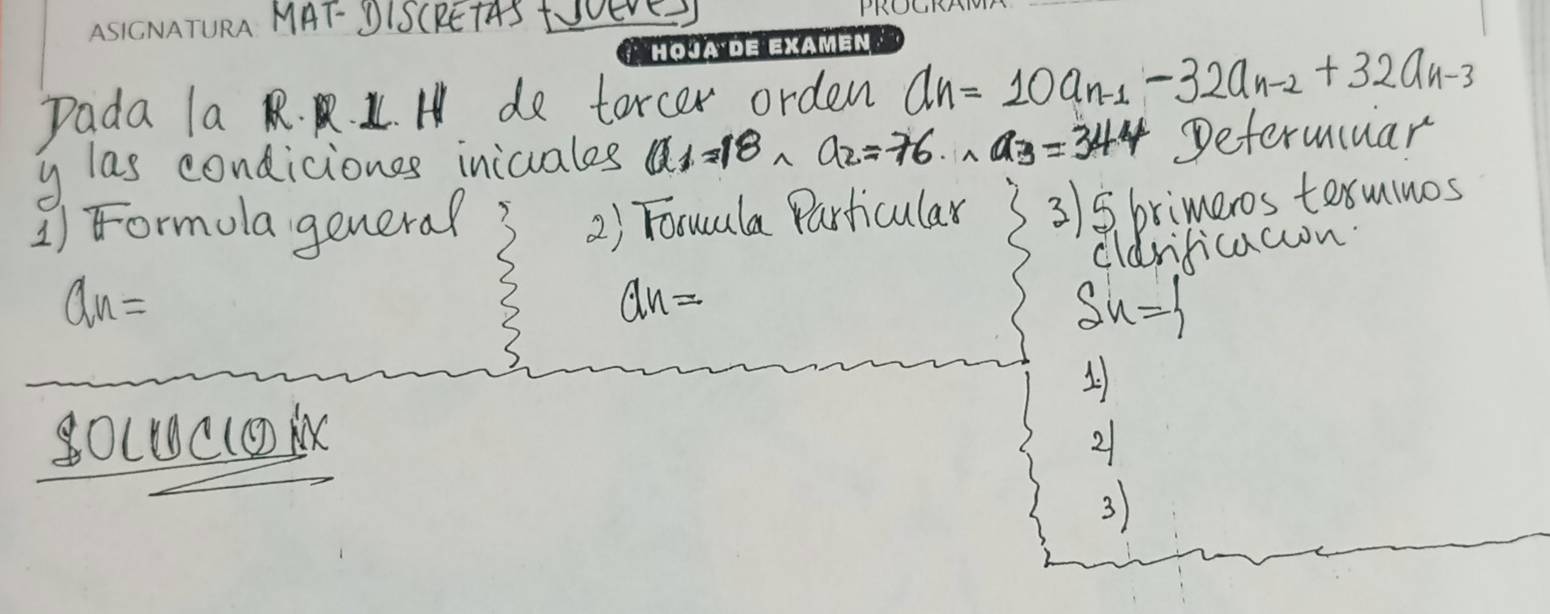 ASIGNATURA MAT- DISCRETAS [JUEVES] PROGRAMA
HOJA DE EXAMEN
Dada la R.R.L.H de tercer orden an= 10an-1 -32an-2 +32an-3
y las condiciones iniciales a1=18 ^ a2=76. ^ a3=344 Determinar
1) Formula general 2) Formula Particular 3) 5 primeros terminos
clasificacion.
an= an= Sn={
1)
2)
3)
SOLUCION